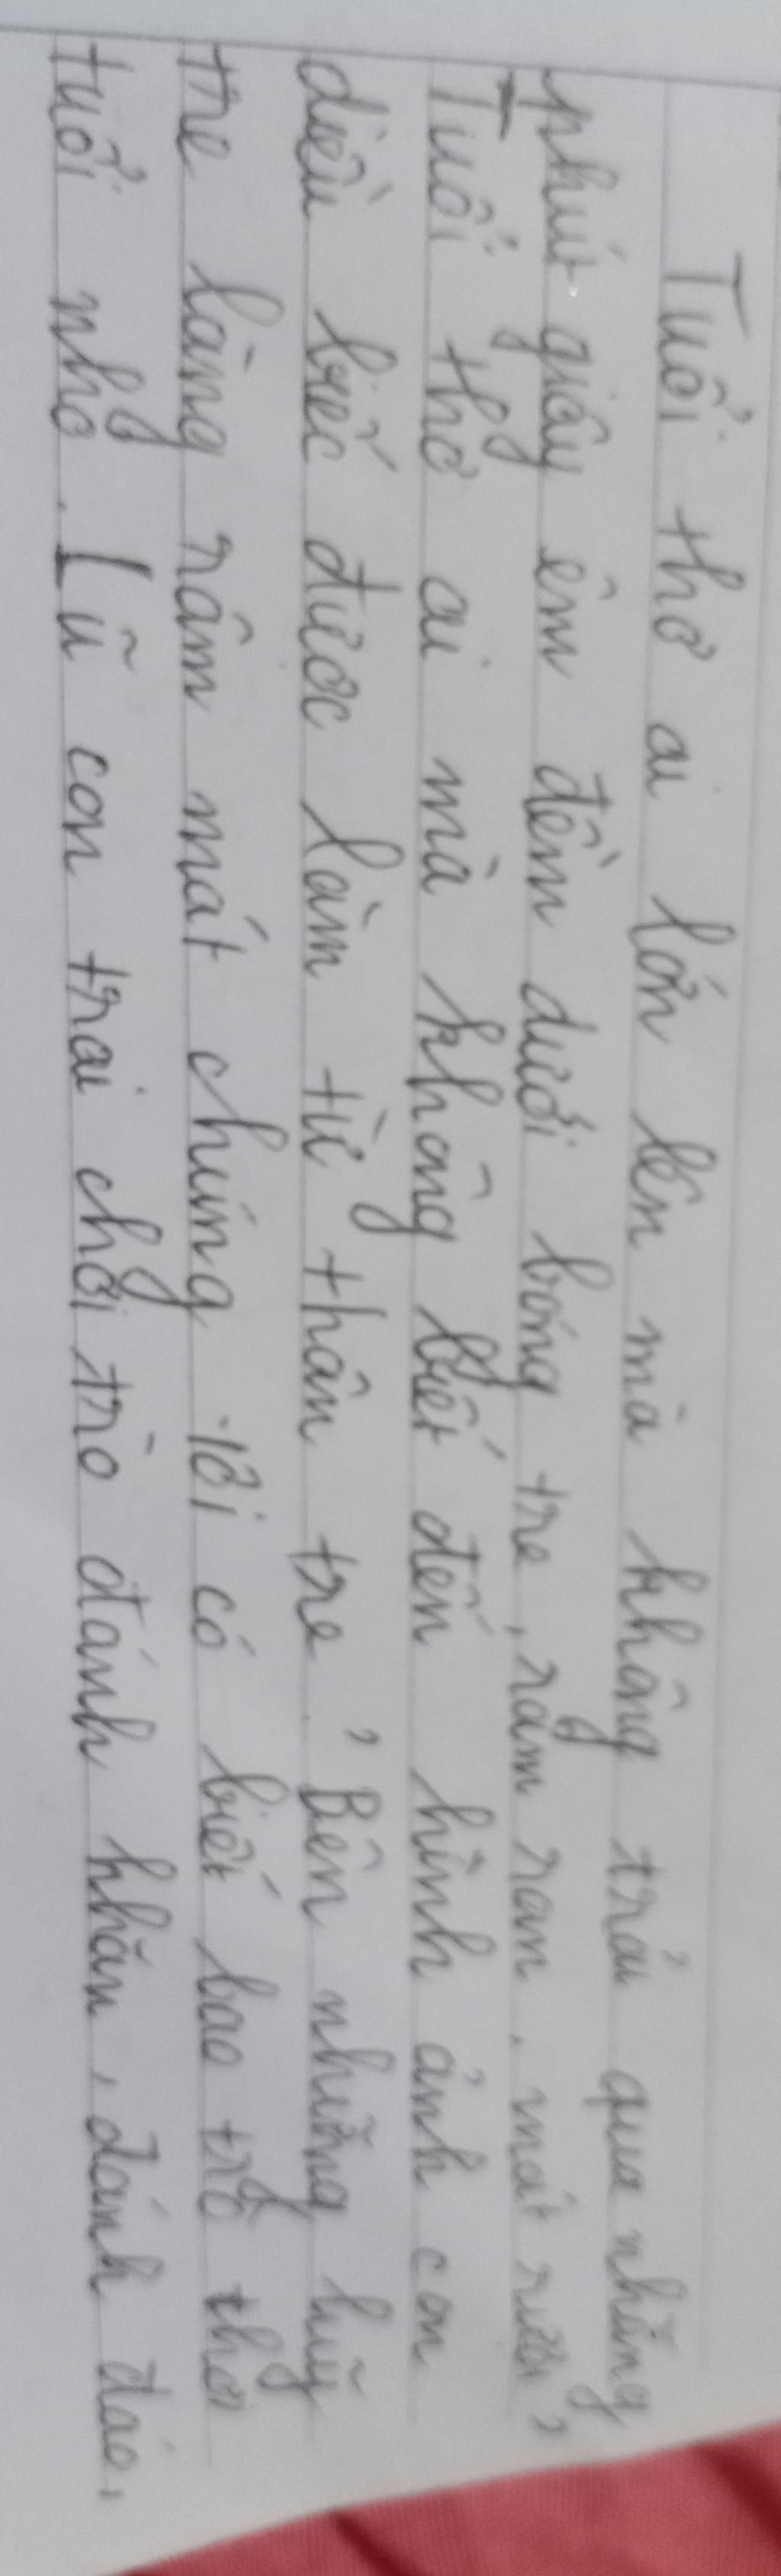 Tuổi thơ ai lớn lên mà không trải qua những
phút giây êm đềm dưới bóng tre, rầm ran, mát rượi,
Tuổi thơ ai mà không biết đến hình ảnh con
diều biếc được làm từ thân tre, Bên những luỹ
tre làng râm mát chúng tôi có biết bao trò thời
tuổi nhỏ. Lũ con trai chơi trò đánh khăn, đánh đáo,